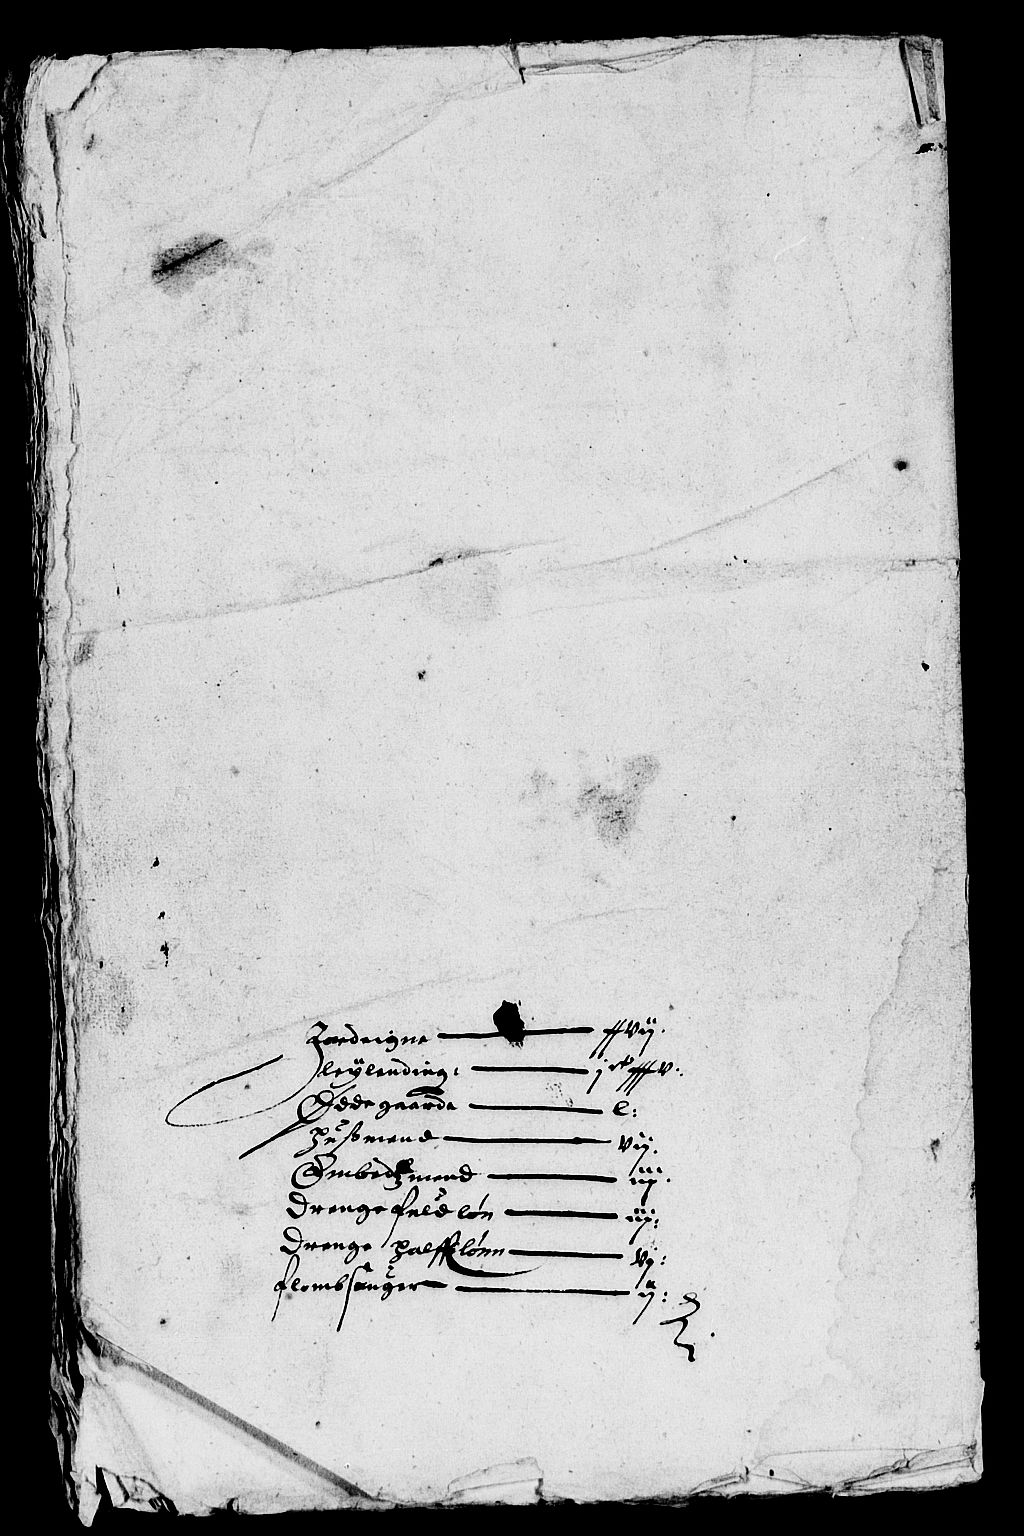 Jordeigne — xxvij.
leylending: — j c xxxv.
Ødde gaarde — l:
Husmend — vij.
Embedzmend — iiij.
Drenge fuld løn — iij:
Drenge halff lønn — vj:
flombsauger — ij: